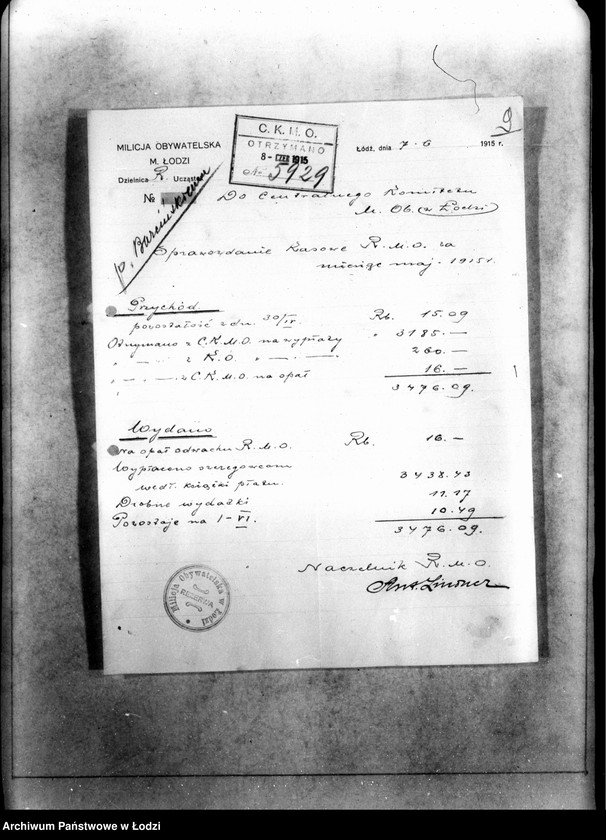 9
MILICJA OBYWATELSKA
M. ŁODZI
Dzielnica R. Uczast
№
C. K. M. O.
OTRZYMANO
8- CZE 1915
№ 5929
Łódź, dnia 7-6 1915 r.
p.
Do Centralnego Komitetu
M. Ob. (w Łodzi)
Sprawozdanie Kasowe R.M.O. za
miesiąc maj. 1915 r.
Przychód
pozostałość z dn. 30/IV. Rb. 15.09
Otrzymano z C.K.M.O. na wypłaty " 3185.—
" —„— z K.O. " —„— 260.—
" —„— z C.K.M.O. na opał 16.—
3476.09.
Wydano
Na opał odwachu R.M.O. Rb. 16.—
Wypłacono szeregowcom
wedł. książki płatn. 3438.43
Drobne wydatki 11.17
Pozostaje na 1-VI. 10.49
3476.09.
Naczelnik R.M.O.
Ant. Lindner
Milicja Obywatelska w Łodzi
REZERWA
Archiwum Państwowe w Łodzi